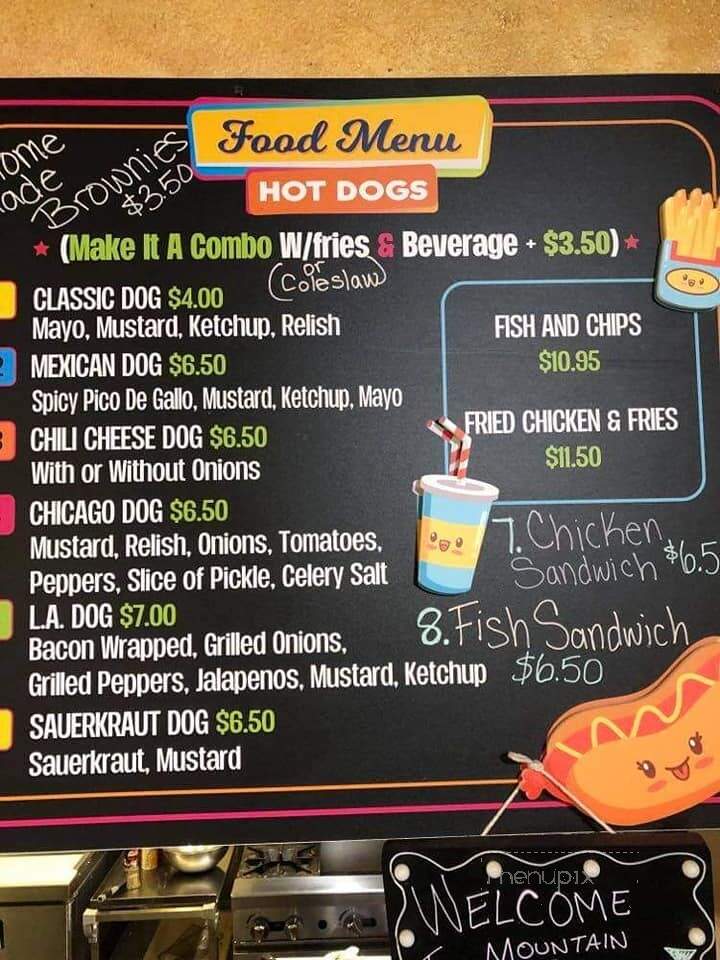 Food Menu
HOT DOGS
Brownies
$3.50
★ (Make It A Combo W/fries & Beverage + $3.50) ★
(or
Coleslaw)
CLASSIC DOG $4.00
Mayo, Mustard, Ketchup, Relish
MEXICAN DOG $6.50
Spicy Pico De Gallo, Mustard, Ketchup, Mayo
CHILI CHEESE DOG $6.50
With or Without Onions
CHICAGO DOG $6.50
Mustard, Relish, Onions, Tomatoes,
Peppers, Slice of Pickle, Celery Salt
L.A. DOG $7.00
Bacon Wrapped, Grilled Onions,
Grilled Peppers, Jalapenos, Mustard, Ketchup
SAUERKRAUT DOG $6.50
Sauerkraut, Mustard
FISH AND CHIPS
$10.95
FRIED CHICKEN & FRIES
$11.50
7. Chicken
Sandwich $6.5
8. Fish Sandwich
$6.50
menupix
WELCOME
MOUNTAIN